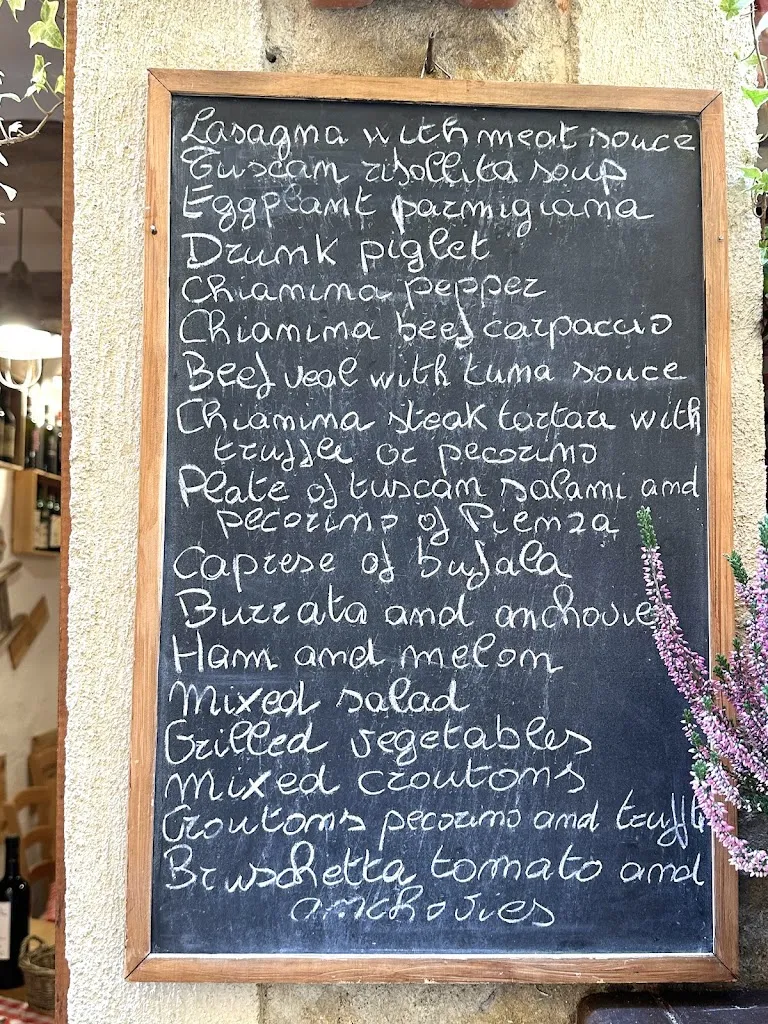 Lasagna with meat souce
Tuscan ribollita soup
Eggplant parmigiana
Drunk piglet
Chianina pepper
Chianina beef carpaccio
Beef veal with tuna souce
Chianina steak tartare with
truffle or pecorino
Plate of tuscan salami and
pecorino of Pienza
Caprese of bufala
Burrata and anchovie
Ham and melon
Mixed salad
Grilled vegetables
Mixed croutons
Croutons pecorino and truffle
Bruschetta tomato and
anchovies